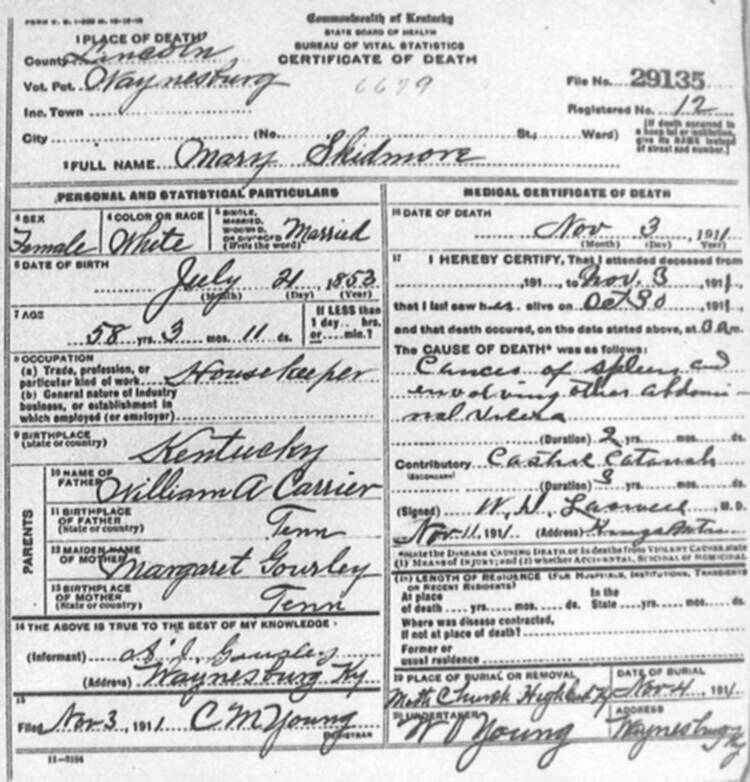 Commonwealth of Kentucky
STATE BOARD OF HEALTH
BUREAU OF VITAL STATISTICS
CERTIFICATE OF DEATH
1 PLACE OF DEATH
County Lincoln
Vot. Pct. Waynesburg
6679
File No. 29135
Inc. Town
Registered No. 12
City (No. St., Ward)
[If death occurred in a hospital or institution, give its NAME instead of street and number.]
2 FULL NAME Mary Skidmore
PERSONAL AND STATISTICAL PARTICULARS
3 SEX
Female
4 COLOR OR RACE
White
5 SINGLE, MARRIED, WIDOWED, OR DIVORCED (Write the word)
Married
6 DATE OF BIRTH
July 21, 1853
(Month) (Day) (Year)
7 AGE
58 yrs. 3 mos. 11 ds.
If LESS than
1 day.... hrs.
or.....min.?
8 OCCUPATION
(a) Trade, profession, or
particular kind of work Housekeeper
(b) General nature of industry
business, or establishment in
which employed (or employer)
9 BIRTHPLACE
(State or country) Kentucky
PARENTS
10 NAME OF
FATHER William A Carrier
11 BIRTHPLACE
OF FATHER
(State or country) Tenn
12 MAIDEN NAME
OF MOTHER Margaret Gourley
13 BIRTHPLACE
OF MOTHER
(State or country) Tenn
14 THE ABOVE IS TRUE TO THE BEST OF MY KNOWLEDGE
(Informant) Gourley
(Address) Waynesburg Ky
15
Filed Nov 3, 1911 C M Young
REGISTRAR
11-3184
MEDICAL CERTIFICATE OF DEATH
16 DATE OF DEATH
Nov 3, 1911
(Month) (Day) (Year)
17 I HEREBY CERTIFY, That I attended deceased from
, 191 , to Nov. 3, 1911,
that I last saw her alive on Oct 30, 1911,
and that death occured, on the date stated above, at m.
The CAUSE OF DEATH* was as follows:
Cancer of spleen and
envolving other abdomi-
nal
(Duration) 2 yrs. mos. ds.
Contributory
(SECONDARY)
(Duration) 3 yrs. mos. ds.
(Signed) W. D. M. D.
Nov. 11, 1911 (Address)
*State the DISEASE CAUSING DEATH, or in deaths from VIOLENT CAUSES, state
(1) MEANS OF INJURY; and (2) whether ACCIDENTAL, SUICIDAL OR HOMICIDAL
18 LENGTH OF RESIDENCE (FOR HOSPITALS, INSTITUTIONS, TRANSIENTS
OR RECENT RESIDENTS)
At place
of death yrs. mos. ds.
In the
State yrs. mos. ds.
Where was disease contracted,
If not at place of death?
Former or
usual residence
19 PLACE OF BURIAL OR REMOVAL
Meth Church Highland Ky
DATE OF BURIAL
Nov 4 1911
20 UNDERTAKER
Young
ADDRESS
Waynesburg Ky